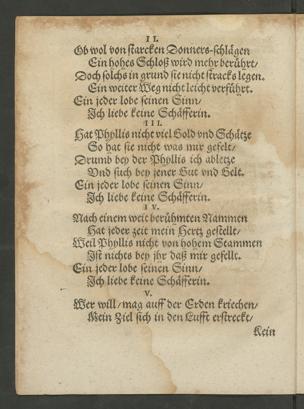 II.
Ob wol von starcken Donners-schlägen
Ein hohes Schloß wird mehr berührt/
Doch solchs in grund sie nicht stracks legen.
Ein weiter Weg nicht leicht verführt.
Ein jeder lobe seinen Sinn/
Ich liebe keine Schäfferin.
III.
Hat Phyllis nicht viel Gold vnd Schätze
So hat sie nicht was mir gefelt/
Drumb bey der Phyllis ich abletze
Vnd such bey jener Gut vnd Gelt.
Ein jeder lobe seinen Sinn/
Ich liebe keine Schäfferin.
IV.
Nach einem weit berühmten Nammen
Hat jeder zeit mein Hertz gestellt/
Weil Phyllis nicht von hohem Stammen
Ist nichts bey jhr daß mir gefellt.
Ein jeder lobe seinen Sinn/
Ich liebe keine Schäfferin.
V.
Wer will/ mag auff der Erden kriechen/
Mein Ziel sich in den Lufft erstreckt/
Kein